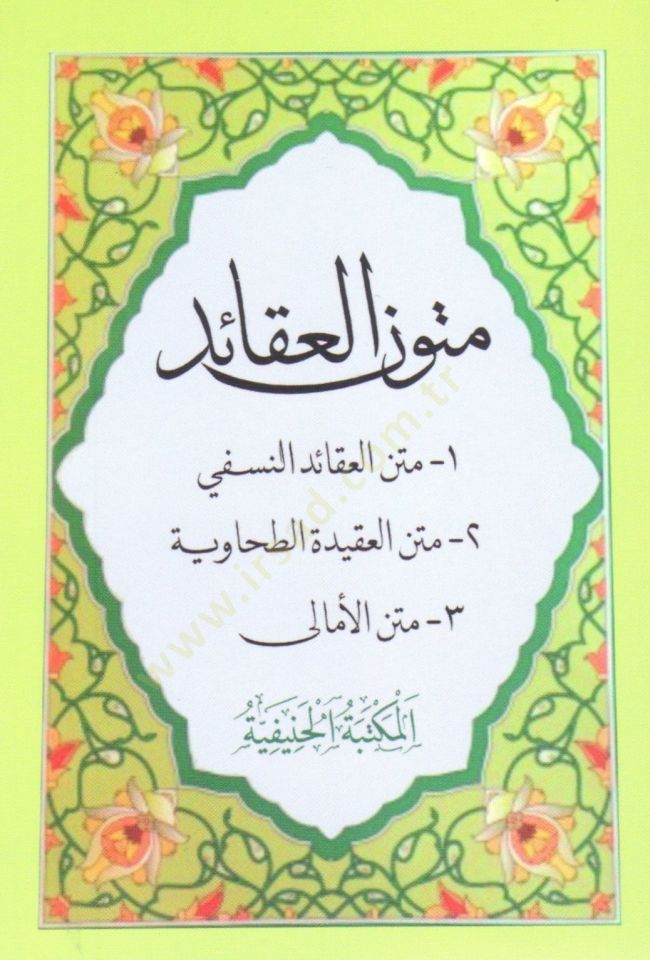 متون العقائد
١- متن العقائد النسفي
٢- متن العقيدة الطحاوية
٣- متن الأمالى
اَلْمَكْتَبَةُ الْحَنِيفِيَّةُ
www.irsad.com.tr